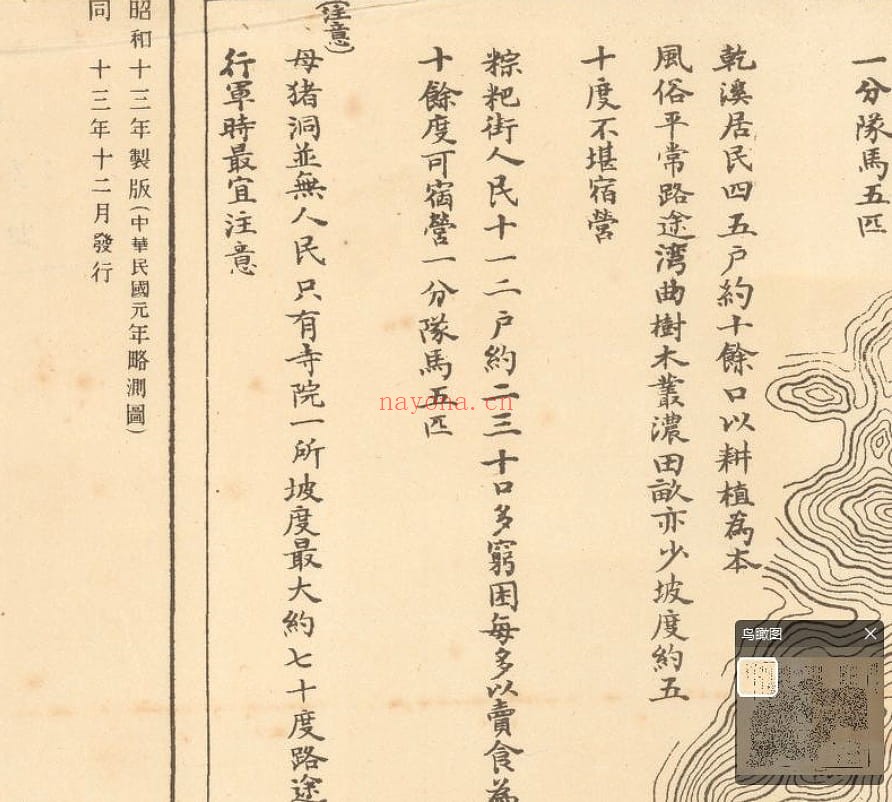 一分隊馬五匹
乾溪居民四五户約十餘口以耕植為本
風俗平常路途湾曲樹木叢濃田畝亦少坡度約五
十度不堪宿營
粽粑街人民十一二户約二三十口多窮困每多以賣食為
十餘度可宿營一分隊馬五匹
(注意)
母猪洞並無人民只有寺院一所坡度最大約七十度路途
行軍時最宜注意
昭和十三年製版(中華民國元年略測圖)
同 十三年十二月發行
nayona.cn
鸟瞰图